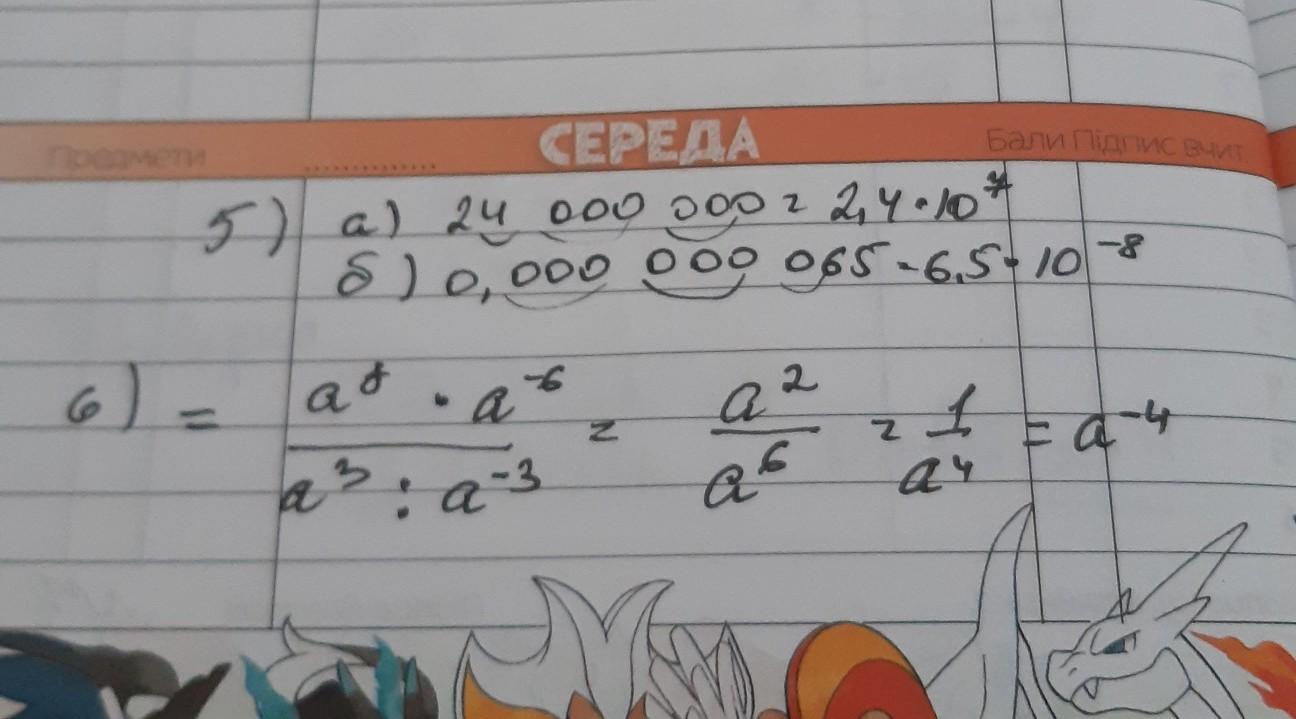 СЕРЕДА
Предмети ............... Бали Підпис вчит.
5) а) 24 000 000 = 2,4 · 10⁷
б) 0,000 000 065 = 6,5 · 10⁻⁸
6) = (a⁸ · a⁻⁶)/(a³ : a⁻³) = a²/a⁶ = 1/a⁴ = a⁻⁴